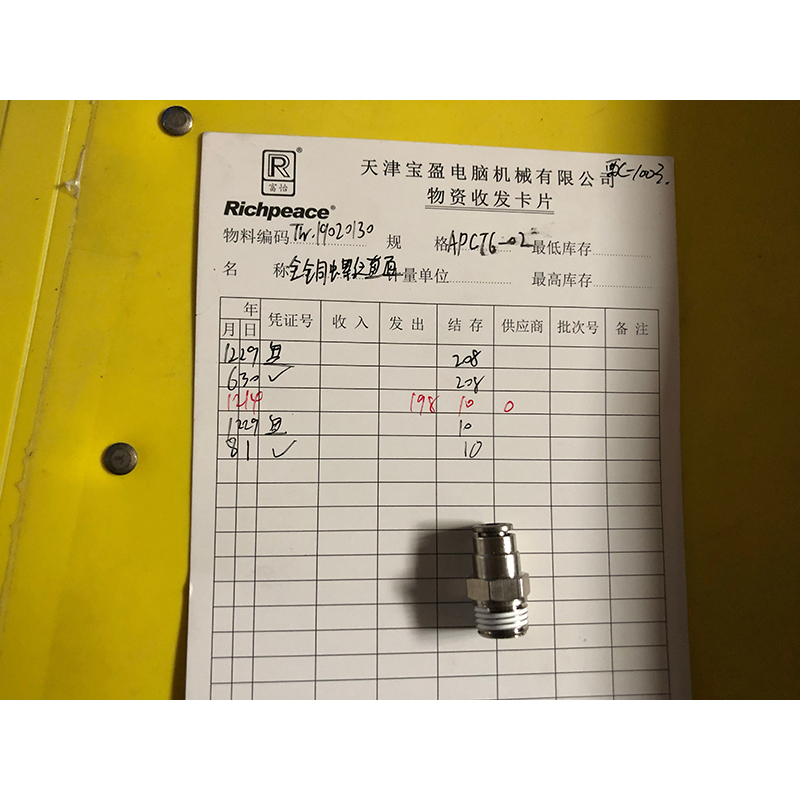 R
®
富怡
Richpeace®
天津宝盈电脑机械有限公司
物资收发卡片
物料编码 TW.19020130 规 格 APCT6-02 最低库存
名 称 计量单位 最高库存
年
月 日 凭证号 收 入 发 出 结 存 供应商 批次号 备 注
12 29 208
6 30 ✓ 208
12 14 198 10 0
12 29 10
8 1 ✓ 10